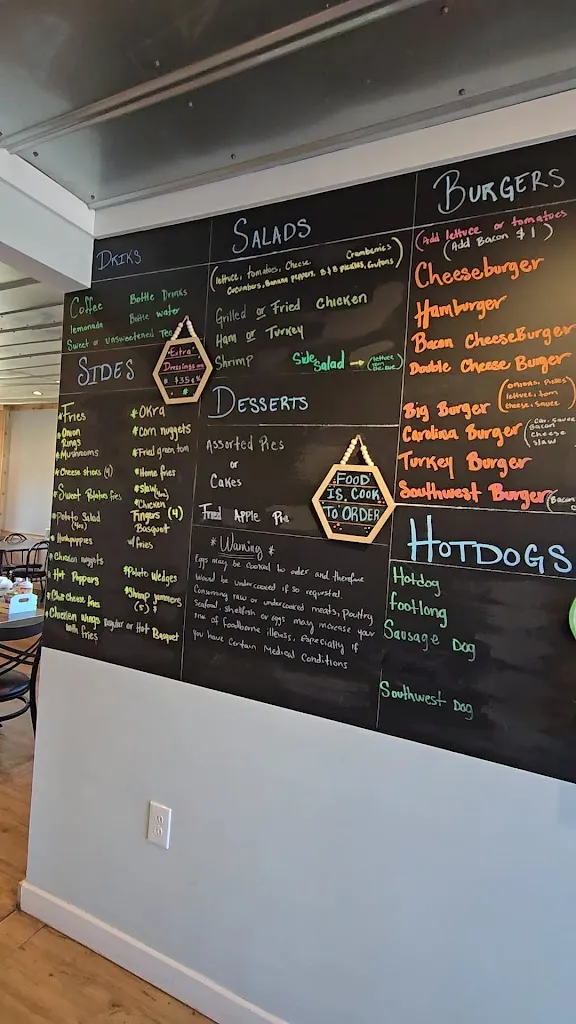 DRIKS
Coffee
lemonade
Sweet or unsweetened Tea
Bottle Drinks
Bottle water
"Extra"
Dressings
SIDES
Fries
Onion
Rings
Mushrooms
Cheese sticks (4)
Sweet Potatoes fries
Potato Salad
Hushpuppies
Chicken nuggets
Hot Poppers
Chili Cheese fries
Chicken wings
with fries
Okra
Corn nuggets
Fried green tom
Home fries
Slaw
Chicken
Fingers (4)
Basquet
w/ fries
Potato Wedges
Shrimp jammers
(5)
Regular or Hot Basquet
SALADS
(lettuce, tomatoes, Cheese
Cranberries
Cucumbers, Banana peppers, B&B pickles, Crutons)
Grilled or Fried Chicken
Ham or Turkey
Shrimp
Side Salad
DESSERTS
Assorted Pies
or
Cakes
Fried Apple Pie
FOOD
IS COOK
TO ORDER
* Warning *
Eggs may be cooked to order and therefore
Would be undercooked if so requested.
Consuming raw or undercooked meats, Poultry
Seafood, shellfish or eggs may increase your
risk of Foodborne illness, especially if
you have Certain Medical Conditions
BURGERS
(Add lettuce or tomatoes
(Add Bacon $1)
Cheeseburger
Hamburger
Bacon CheeseBurger
Double Cheese Burger
Big Burger
(onions, Pickles
lettuce, tom
cheese, sauce)
Carolina Burger
Bacon
cheese
slaw
Turkey Burger
Southwest Burger
(Bacon
HOTDOGS
Hotdog
footlong
Sausage Dog
Southwest Dog